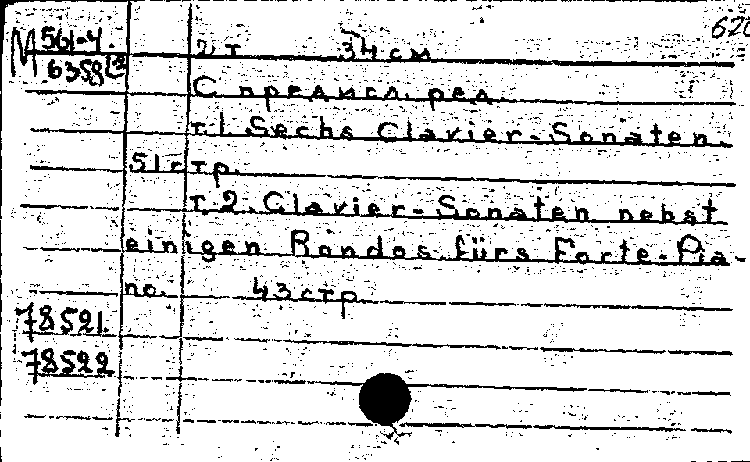 620
М 561-4. 2 т 34 см
6358
С предисл. ред.
т. 1. Sechs Clavier-Sonaten.
51 стр.
т. 2. Clavier-Sonaten nebst
einigen Rondos fürs Forte-Pia-
no. 43 стр.
78521.
78522